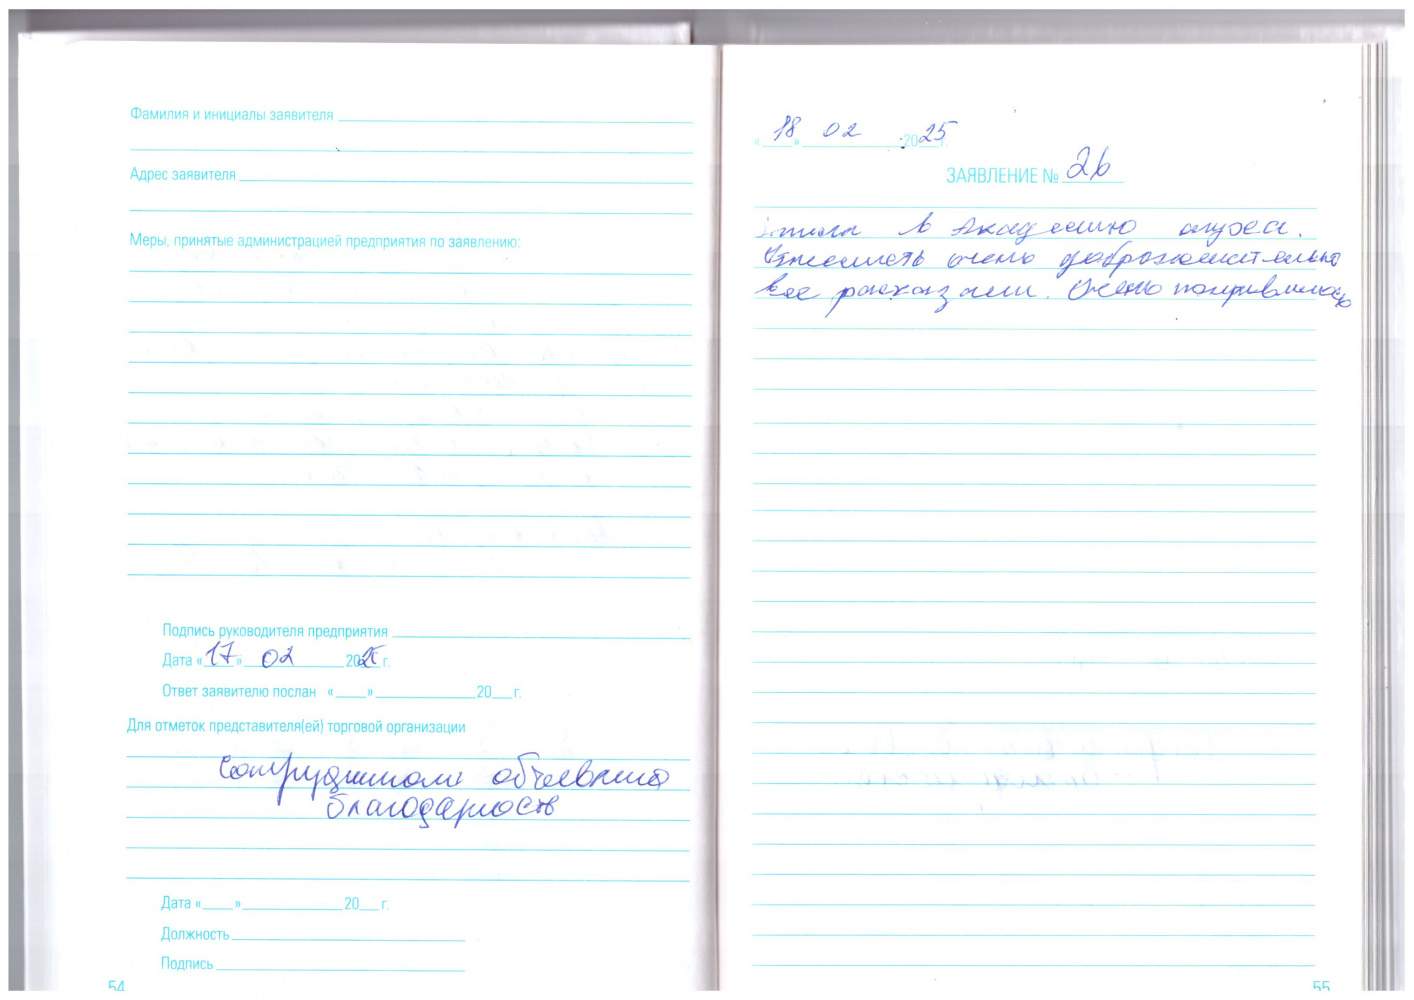 Фамилия и инициалы заявителя
Адрес заявителя
Меры, принятые администрацией предприятия по заявлению:
Подпись руководителя предприятия
Дата «17» 02 2025 г.
Ответ заявителю послан «    »    20   г.
Для отметок представителя(ей) торговой организации
Сотрудникам объявлена
благодарность
Дата «    »    20   г.
Должность
Подпись
54
«18» 02 2025 г.
ЗАЯВЛЕНИЕ № 26
в Академию слуха.
очень доброжелательно
все рассказали. Очень понравилось
55